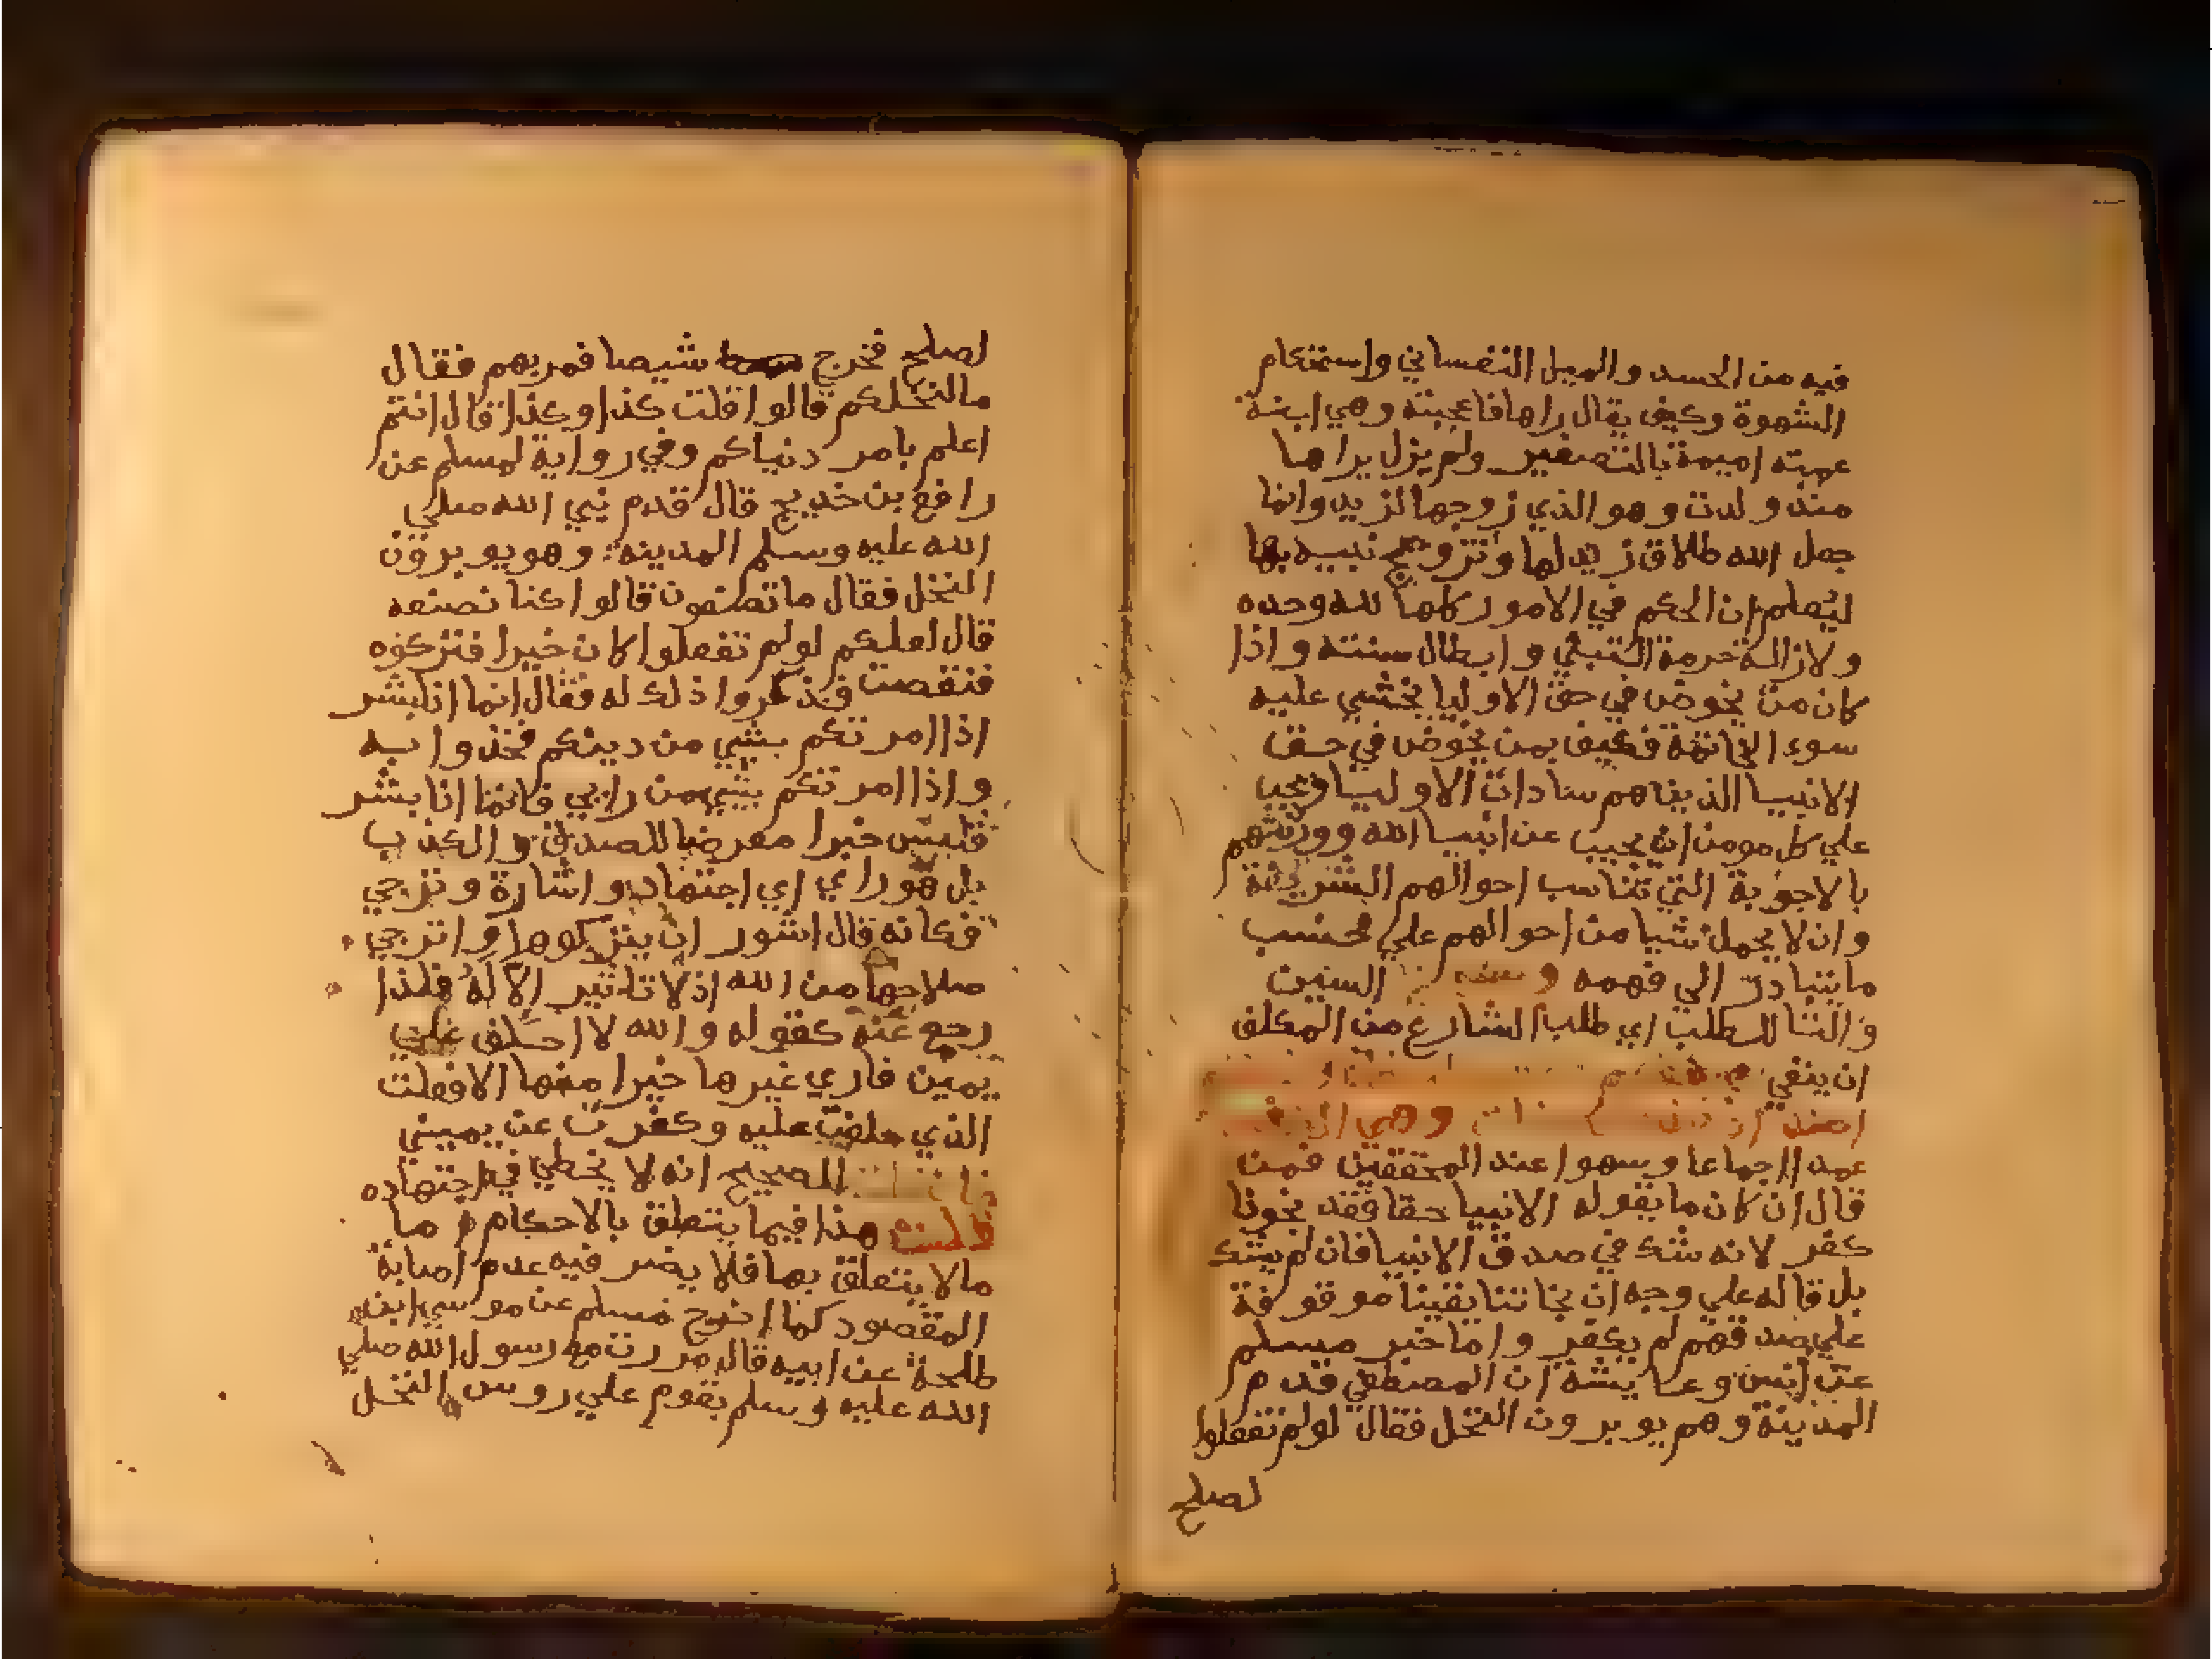 فيه من الحسد والميل النفساني واستحكام
الشهوة وكيف يقال راها فاعجبته وهي ابنة
عمته اميمة بالتصغير ولم يزل يراها
منذ ولدت وهو الذي زوجها لزيد وانما
جعل الله طلاق زيد لها وتزويج نبيه بها
ليعلم ان الحكم في الامور كلها لله وحده
ولازالة حرمة التبني وابطال سنته واذا
كان من يخوض في حق الاوليا يخشي عليه
سوء الخاتمة فكيف بمن يخوض في حق
الانبيا الذين هم سادات الاوليا ويجب
علي كل مومن ان يجيب عن انبيا الله وورثتهم
بالاجوبة التي تناسب احوالهم الشريفة
وان لا يحمل شيا من احوالهم علي حسب
ما يتبادر الي فهمه السنين
والتا للطلب اي طلب الشارع من المكلف
ان ينفي
وهي
عمدا اجماعا وسهوا عند المحققين فمن
قال ان كان ما يقوله الانبيا حقا فقد نجونا
كفر لانه شك في صدق الانبيا فان لم يشك
بل قاله علي وجه ان نجاتنا يقينا موقوفة
علي صدقهم لم يكفر واما خبر مسلم
عن انس وعايشة ان المصطفي قدم
المدينة وهم يوبرون النخل فقال لو لم تفعلوا
لصلح
لصلح فخرج شيصا فمر بهم فقال
ما لنخلكم قالوا قلت كذا وكذا قال انتم
اعلم بامر دنياكم وفي رواية لمسلم عن
رافع بن خديج قال قدم نبي الله صلي
الله عليه وسلم المدينه وهو يوبرون
النخل فقال ما تصنعون قالوا كنا نصنعه
قال لعلكم لو لم تفعلوا كان خيرا فتركوه
فنقصت فذكروا ذلك له فقال انما انا بشر
اذا امرتكم بشي من دينكم فخذوا به
واذا امرتكم بشي من رايي فانما انا بشر
فليس خبرا معرضا للصدق والكذب
بل هو راي اي اجتهاد واشارة وترجي
فكانه قال اشور ان يتركوها واترجي
صلاحها من الله اذ لا تاثير الا له فلذا
رجع عنه كقوله والله لا احلف علي
يمين فاري غيرها خيرا منها الا فعلت
الذي حلفت عليه وكفرت عن يميني
الصحيح انه لا يخطي في اجتهاده
قلت هذا فيما يتعلق بالاحكام ما
ما لا يتعلق بها فلا يضر فيه عدم اصابة
المقصود كما اخرج مسلم عن موسي ابن
طلحة عن ابيه قال مررت مع رسول الله صلي
الله عليه وسلم بقوم علي روس النخل